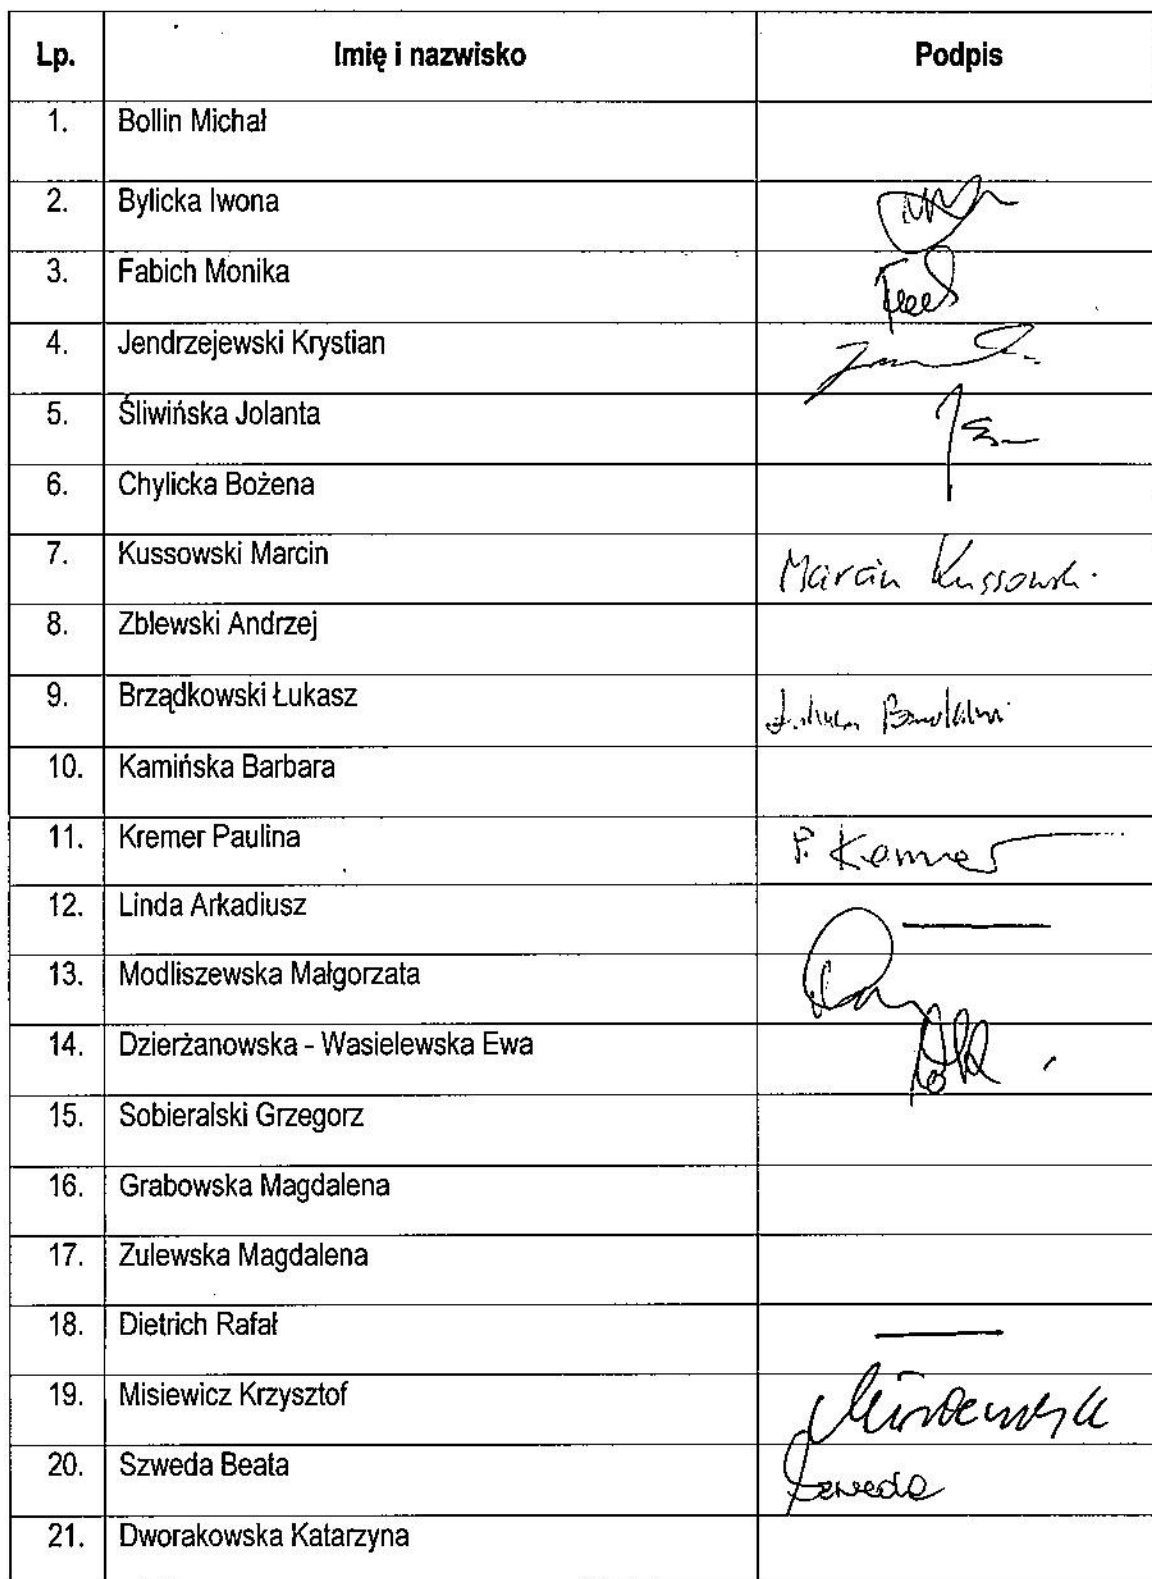 Lp. Imię i nazwisko Podpis
1. Bollin Michał
2. Bylicka Iwona
3. Fabich Monika
4. Jendrzejewski Krystian
5. Śliwińska Jolanta
6. Chylicka Bożena
7. Kussowski Marcin Marcin Kussowski
8. Zblewski Andrzej
9. Brządkowski Łukasz
10. Kamińska Barbara
11. Kremer Paulina P. Kremer
12. Linda Arkadiusz
13. Modliszewska Małgorzata
14. Dzierżanowska - Wasielewska Ewa
15. Sobieralski Grzegorz
16. Grabowska Magdalena
17. Zulewska Magdalena
18. Dietrich Rafał
19. Misiewicz Krzysztof
20. Szweda Beata Szweda
21. Dworakowska Katarzyna